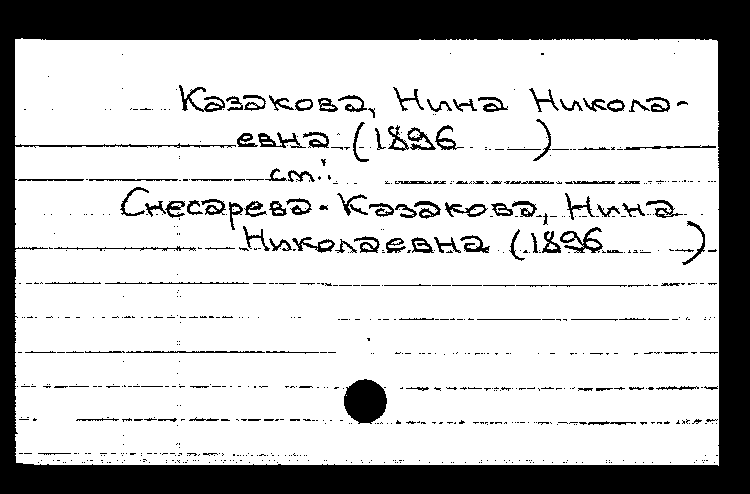 Казакова, Нина Никола-
евна (1896      )
см.:
Снесарева-Казакова, Нина
Николаевна (1896      )